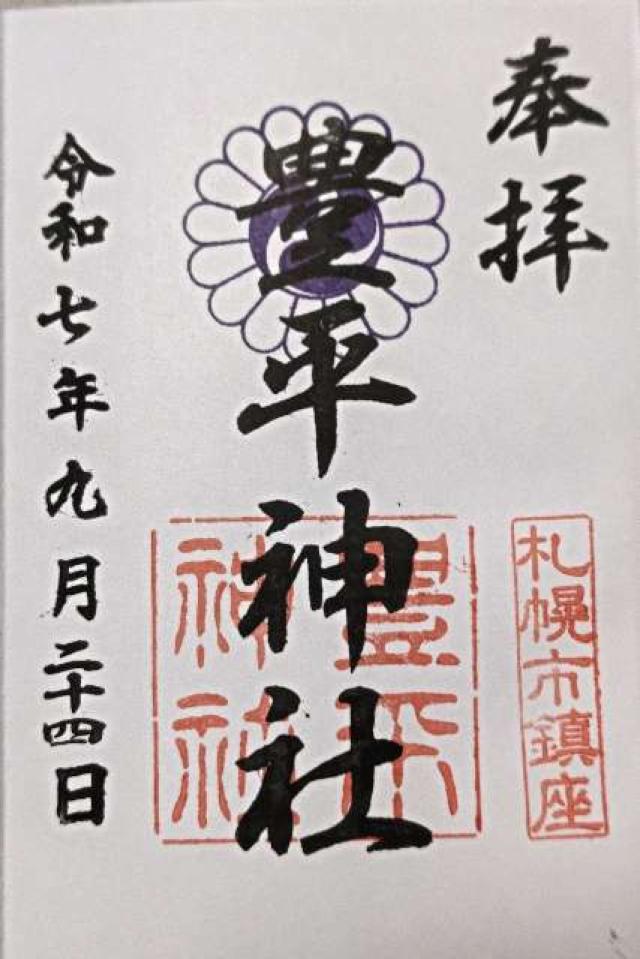 奉拝
札幌市鎮座
豊平神社
豊平神社
令和七年九月二十四日